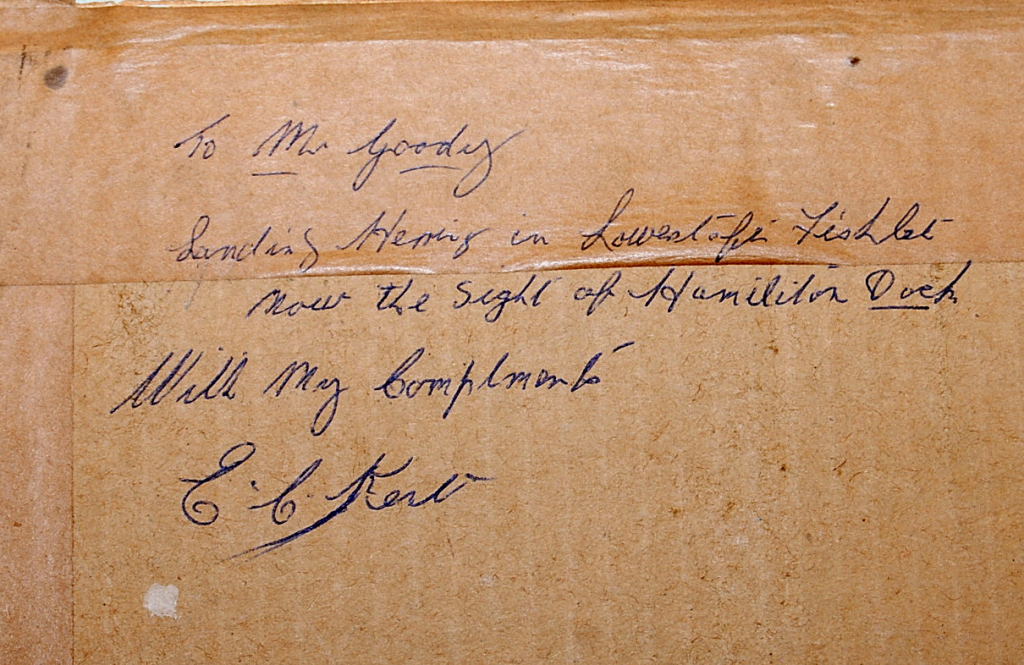 To Mr Goody
Landing Herring in Lowestoft Fishlet
now the Sight of Hamiliton Dock
With My Complments
E. C. Kent